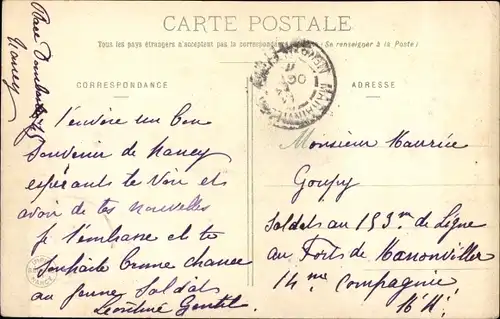 CARTE POSTALE
Tous les pays étrangers n'acceptent pas la correspondance (Se renseigner à la Poste)
CORRESPONDANCE
ADRESSE
Place Dombasle
Nancy
t'envoie un bon
Souvenir de Nancy
espérant te voir et
avoir de tes nouvelles
je t'embrasse et te
souhaite bonne chance
au jeune soldat
Léontine Gentil
Monsieur Maurice
Goupy
Soldat au 153me de Ligne
au Forts de Manonviller
14me Compagnie